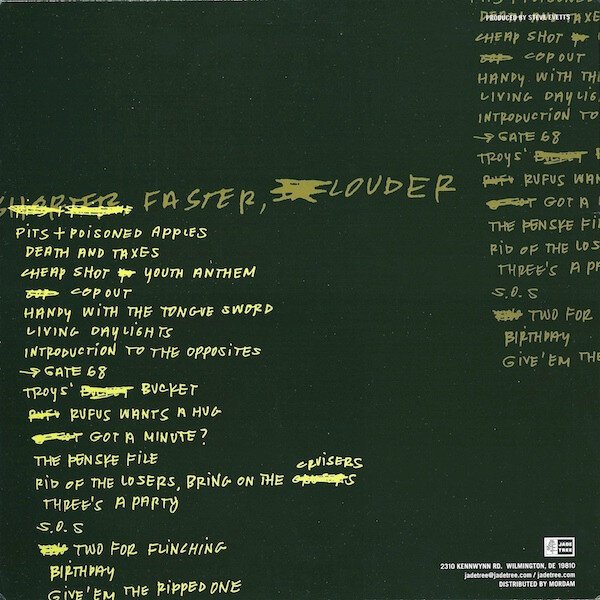 PRODUCED BY STEVE EVETTS
SHORTER FASTER, LOUDER
PITS + POISONED APPLES
DEATH AND TAXES
CHEAP SHOT YOUTH ANTHEM
COP OUT
HANDY WITH THE TONGUE SWORD
LIVING DAYLIGHTS
INTRODUCTION TO THE OPPOSITES
→ GATE 68
TROYS' BUCKET BUCKET
RUFUS WANTS A HUG
GOT A MINUTE?
THE PENSKE FILE
RID OF THE LOSERS, BRING ON THE CRUISERS
THREE'S A PARTY
S.O.S
TWO FOR FLINCHING
BIRTHDAY
GIVE 'EM THE RIPPED ONE
PITS + POISONED
DEATH AND TAXE
CHEAP SHOT
COP OUT
HANDY WITH THE
LIVING DAYLIG
INTRODUCTION TO
→ GATE 68
TROYS' BUCKET B
RUFUS WAN
GOT A
THE PENSKE FI
RID OF THE LOS
THREE'S A P
S.O.S
TWO FOR
BIRTHDAY
GIVE 'EM THE
JADE
TREE
2310 KENNWYNN RD. WILMINGTON, DE 19810
jadetree@jadetree.com / jadetree.com
DISTRIBUTED BY MORDAM